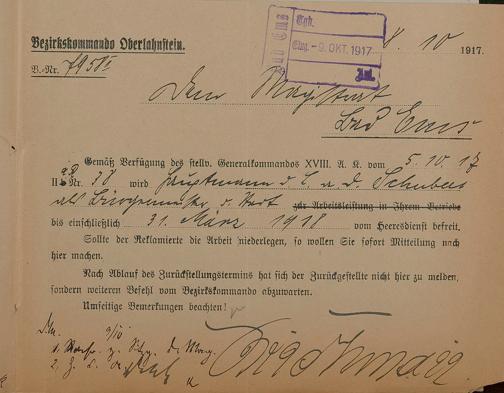 Bad Ems
Tgb.
Eing. - 9. OKT. 1917
8. 10 1917.
Bezirkskommando Oberlahnstein.
B.-Nr. 7958
Dem Magistrat
Bad Ems
Gemäß Verfügung des stellv. Generalkommandos XVIII. A. K. vom 5.10.17
II Nr. 38 wird Hauptmann d. L. a. D. Schubert
als Bürgermeister d. Stadt zur Arbeitsleistung in Ihrem Betriebe
bis einschließlich 31. März 1918 vom Heeresdienst befreit.
Sollte der Reklamierte die Arbeit niederlegen, so wollen Sie sofort Mitteilung nach
hier machen.
Nach Ablauf des Zurückstellungstermins hat sich der Zurückgestellte nicht hier zu melden,
sondern weiteren Befehl vom Bezirkskommando abzuwarten.
Umseitige Bemerkungen beachten!
9/10
1,
2, z. d. A.